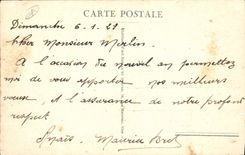 CARTE POSTALE
Dimanche 6-1-21
Cher Monsieur Merlin.
A l'occasion du nouvel an permettez
moi de vous apporter nos meilleurs
voeux, et l'assurance de notre profond
respect
Maurice Bret